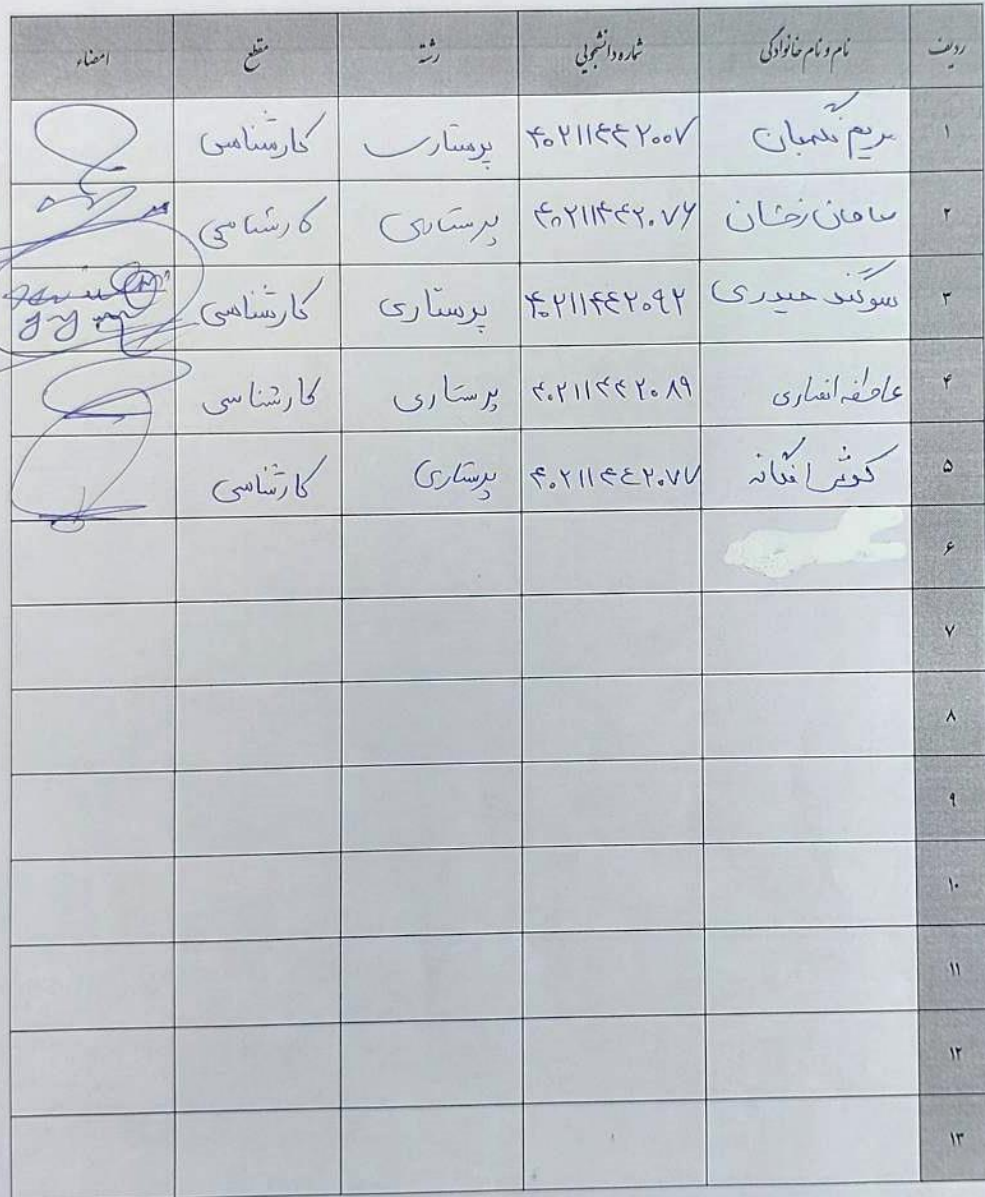 ردیف نام و نام خانوادگی شماره دانشجویی رشته مقطع امضاء
۱ مریم نگهبان ۴۰۲۱۱۴۴۲۰۰۷ پرستاری کارشناسی
۲ سامان رخشان ۴۰۲۱۱۴۴۲۰۷۶ پرستاری کارشناسی
۳ سوگند حیدری ۴۰۲۱۱۴۴۲۰۹۲ پرستاری کارشناسی
۴ عاطفه انصاری ۴۰۲۱۱۴۴۲۰۸۹ پرستاری کارشناسی
۵ کوثر افکانه ۴۰۲۱۱۴۴۲۰۷۷ پرستاری کارشناسی
۶
۷
۸
۹
۱۰
۱۱
۱۲
۱۳